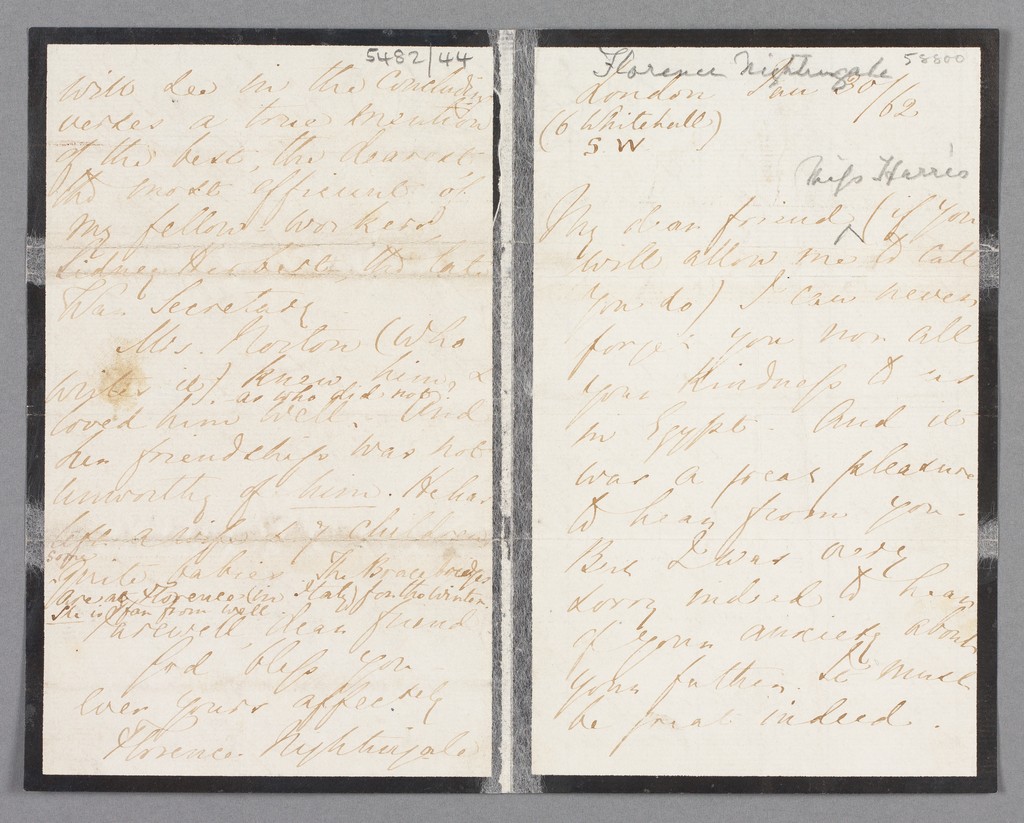 5482/44
will see in the concluding
verses a true mention
of the best, the dearest
& most efficient of
my fellow-workers,
Sidney Herbert, the late
War Secretary.
Mrs. Norton (who
writes it) knew him, &
as who did not?
loved him well. And
her friendship was not
unworthy of him. He has
left a wife & 7 children
some
quite babies. The Bracebridges
(are at Florence (in Italy) for the winter.
She is far from well.
Farewell, dear friend
God bless you
ever yours affectely
Florence Nightingale
Florence Nightingale 58800
London Jan 30/62
(6 Whitehall)
S W
Miss Harris
My dear friend, (if you
will allow me to call
you so) I can never
forget you nor all
your kindness to us
in Egypt. And it
was a great pleasure
to hear from you.
But I was very
sorry indeed to hear
of your anxiety about
your father. It must
be great indeed.